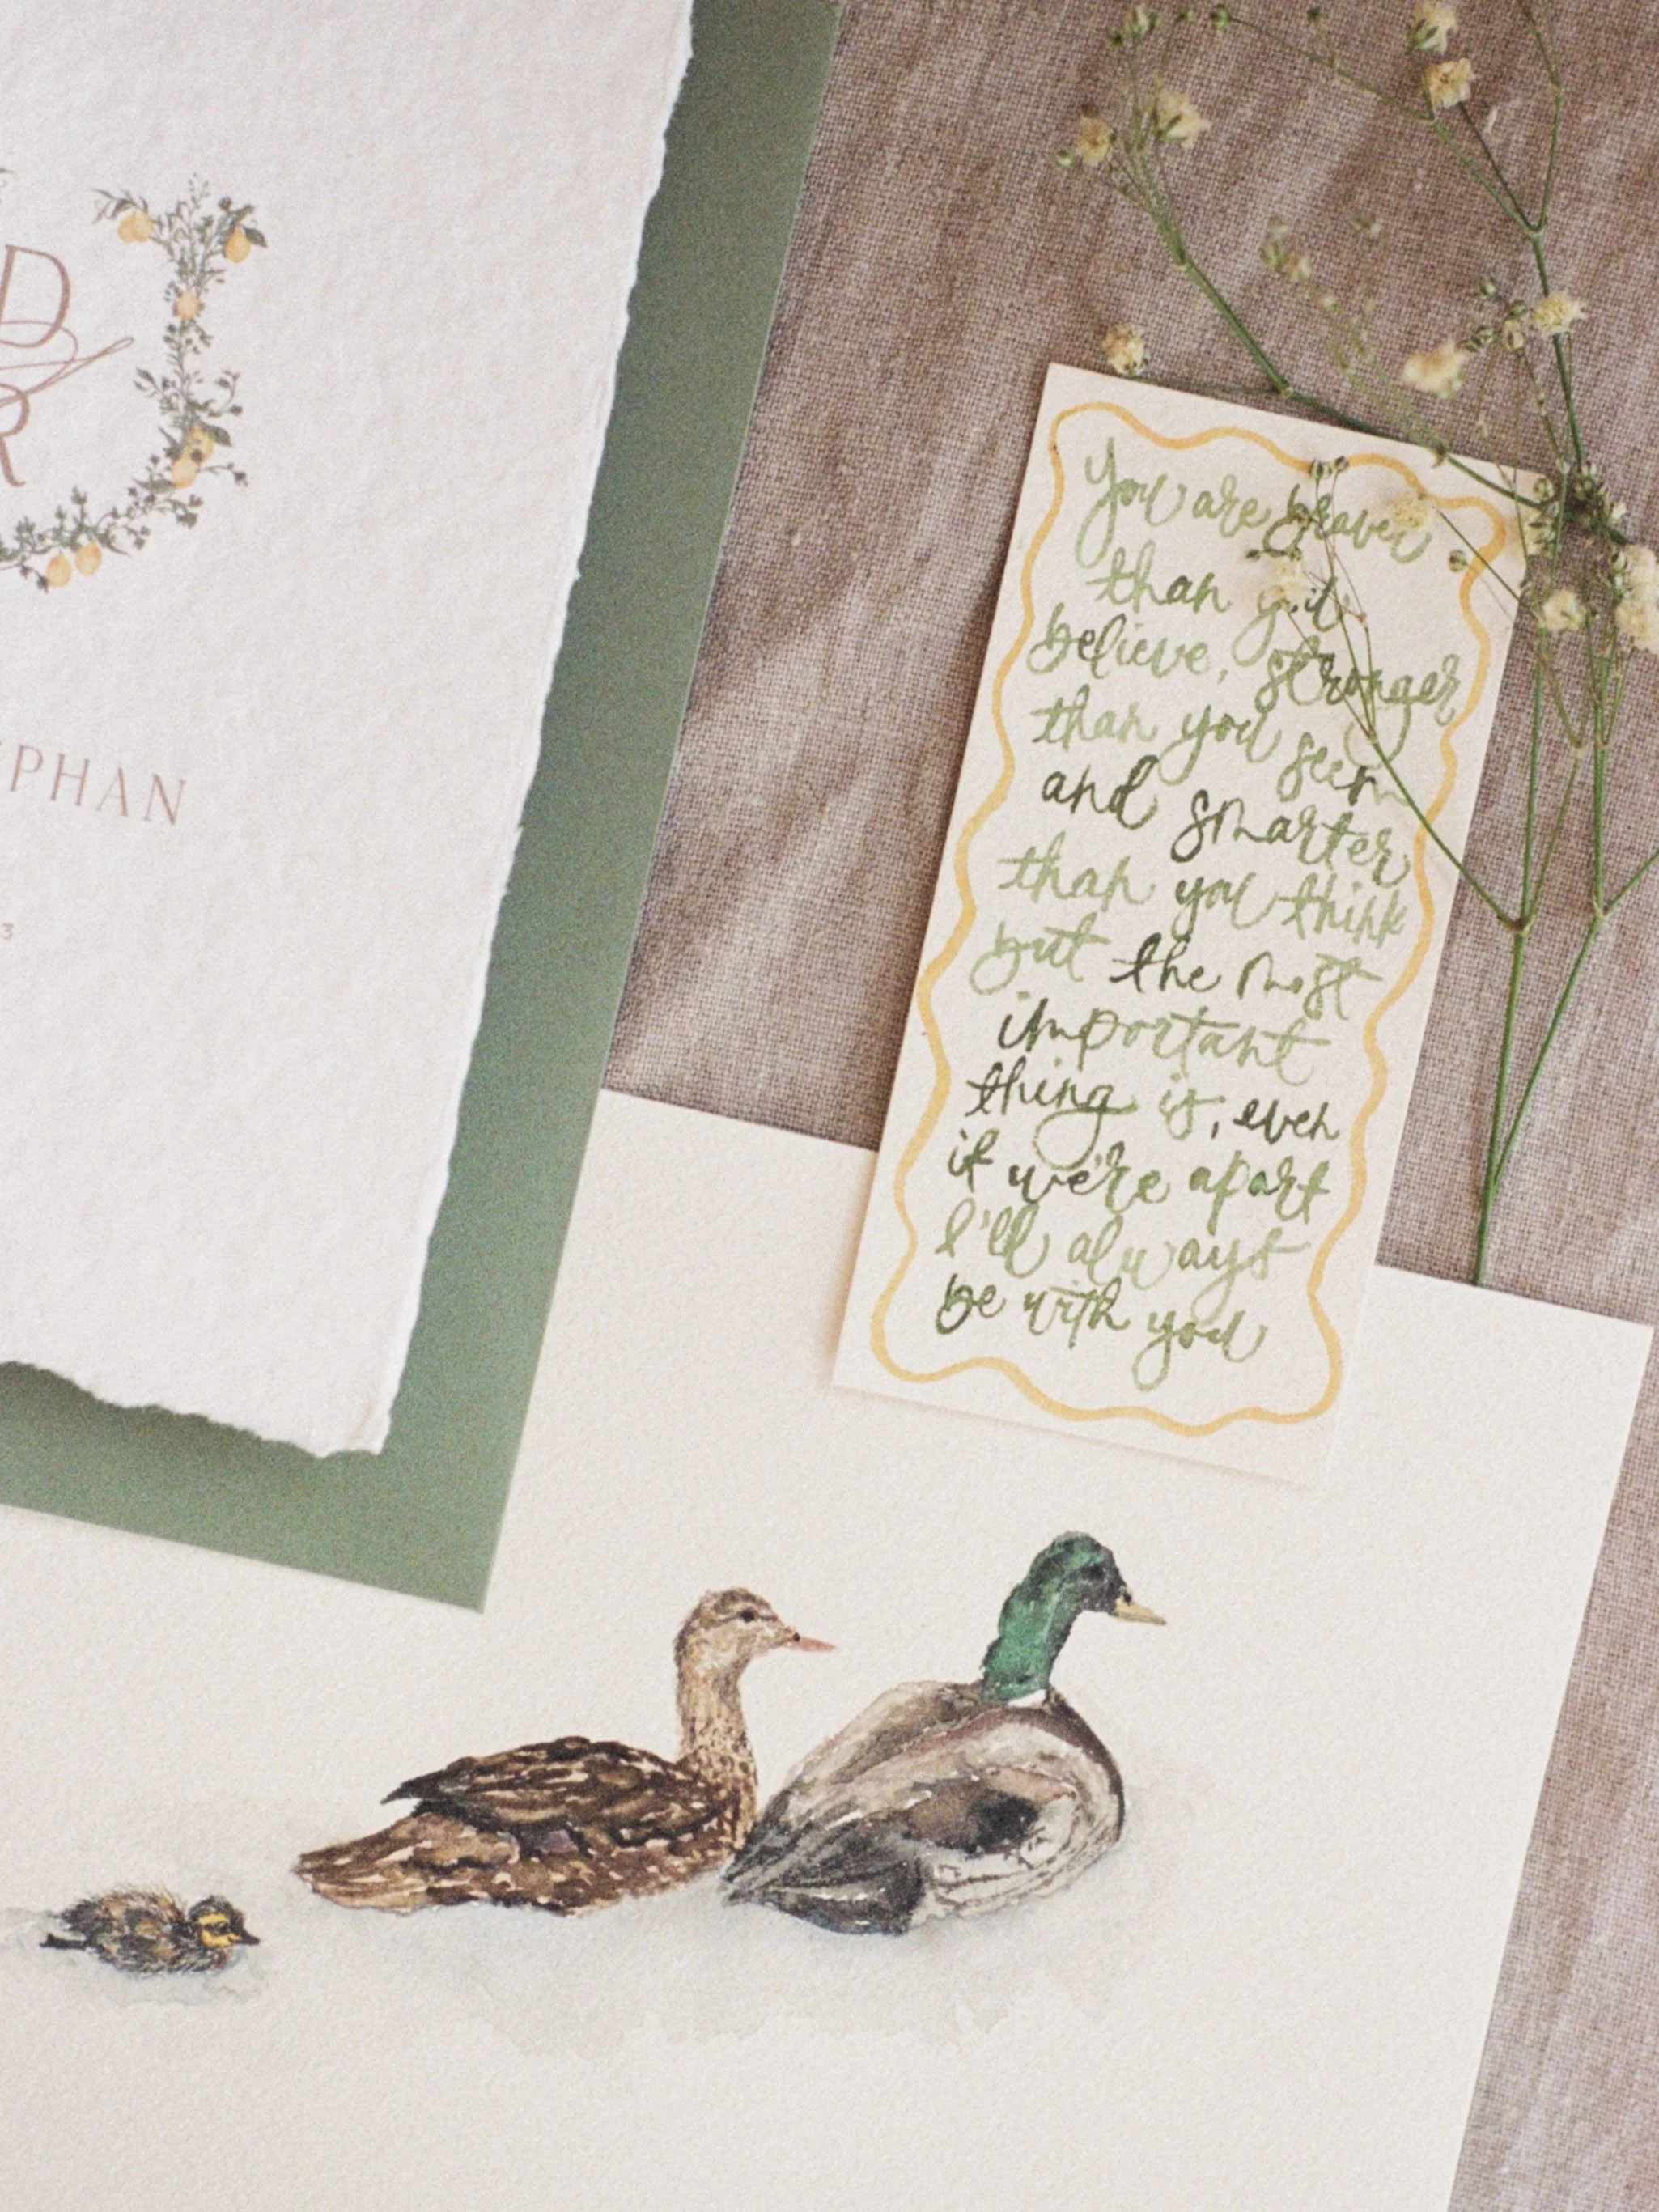 D
&
R
PHAN
3
You are braver
than you
believe, stronger
than you seem
and smarter
than you think
but the most
important
thing is, even
if we're apart
I'll always
be with you